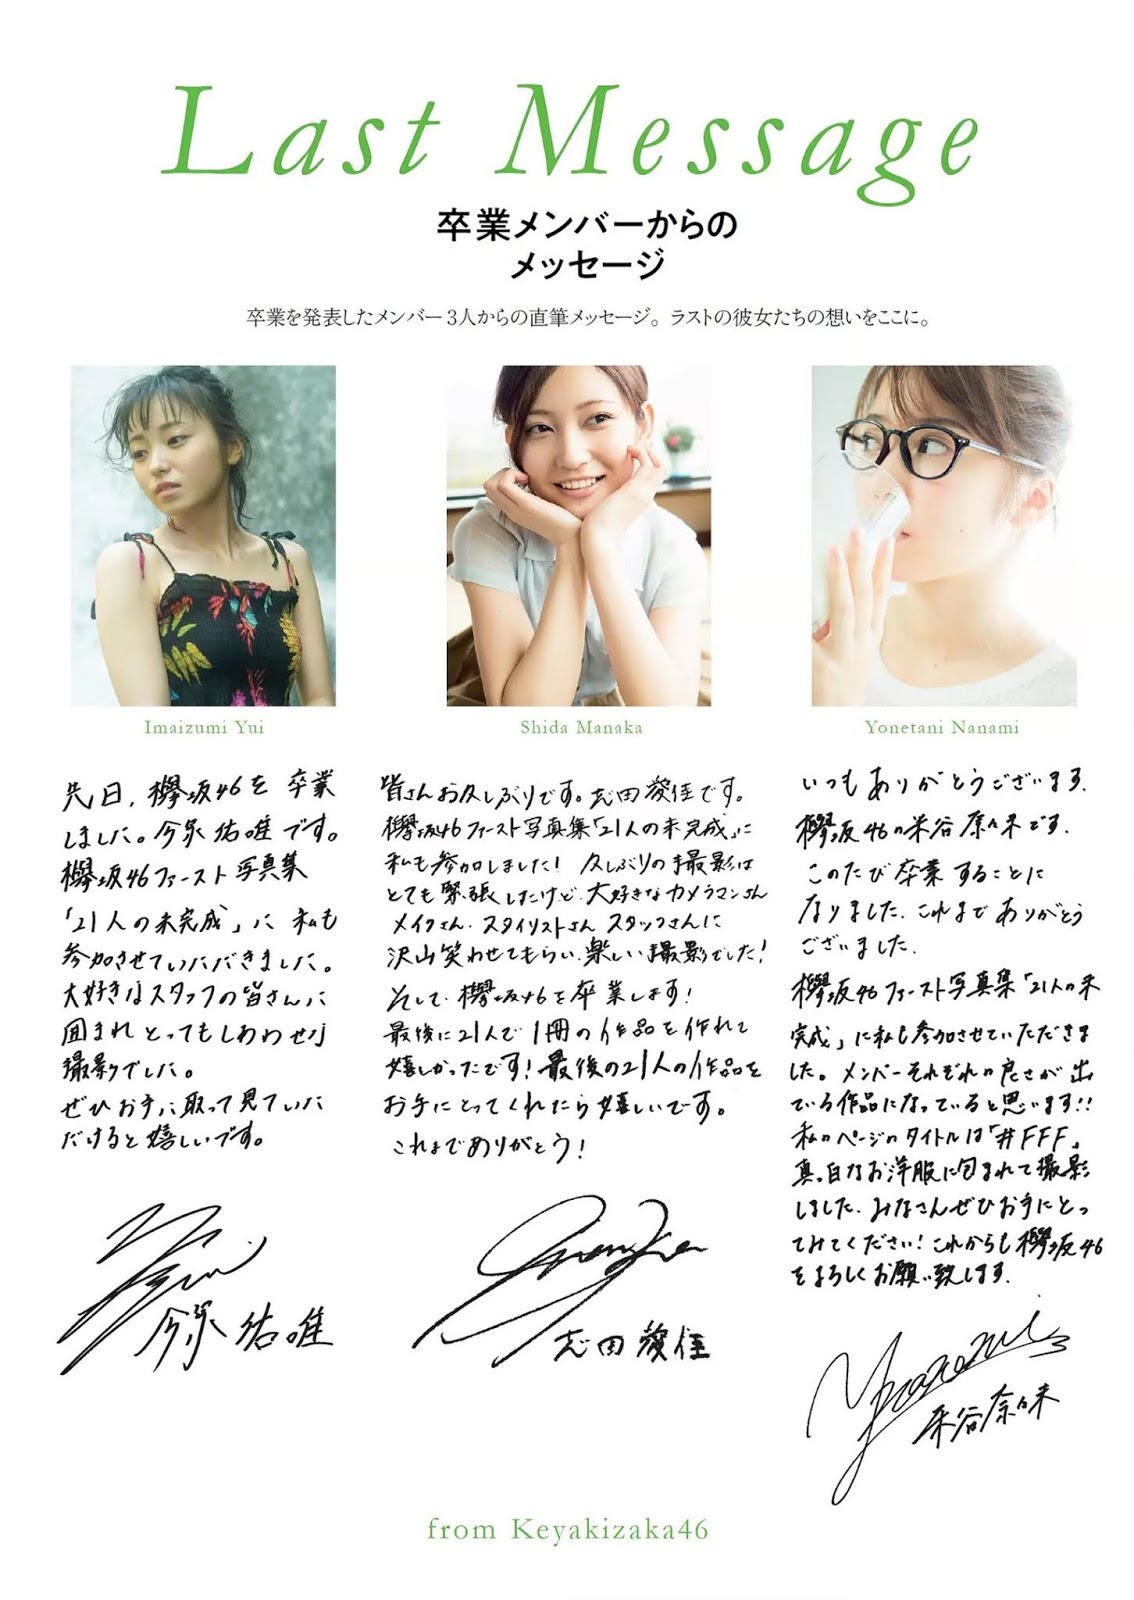 Last Message
卒業メンバーからの
メッセージ
卒業を発表したメンバー3人からの直筆メッセージ。ラストの彼女たちの想いをここに。
Imaizumi Yui
先日、欅坂46を卒業
しました。今泉佑唯です。
欅坂46ファースト写真集
「21人の未完成」に私も
参加させていただきました。
大好きなスタッフの皆さんに
囲まれとってもしあわせな
撮影でした。
ぜひお手に取って見ていた
だけると嬉しいです。
今泉佑唯
Shida Manaka
皆さんお久しぶりです。志田愛佳です。
欅坂46ファースト写真集「21人の未完成」に
私も参加しました！久しぶりの撮影は
とても緊張したけど、大好きなカメラマンさん
メイクさん、スタイリストさん スタッフさんに
沢山笑わせてもらい、楽しい撮影でした！
そして、欅坂46を卒業します！
最後に21人で1冊の作品を作れて
嬉しかったです！最後の21人の作品を
お手にとってくれたら嬉しいです。
これまでありがとう！
志田愛佳
Yonetani Nanami
いつもありがとうございます。
欅坂46の米谷奈々未です。
このたび卒業することに
なりました。これまでありがとう
ございました。
欅坂46ファースト写真集「21人の未
完成」に私も参加させていただきま
した。メンバーそれぞれの良さが出
ている作品になっていると思います!!
私のページのタイトルは「#FFF」
真っ白なお洋服に包まれて撮影
しました。みなさんぜひお手にとっ
てみてください！これからも欅坂46
をよろしくお願い致します。
米谷奈々未
from Keyakizaka46